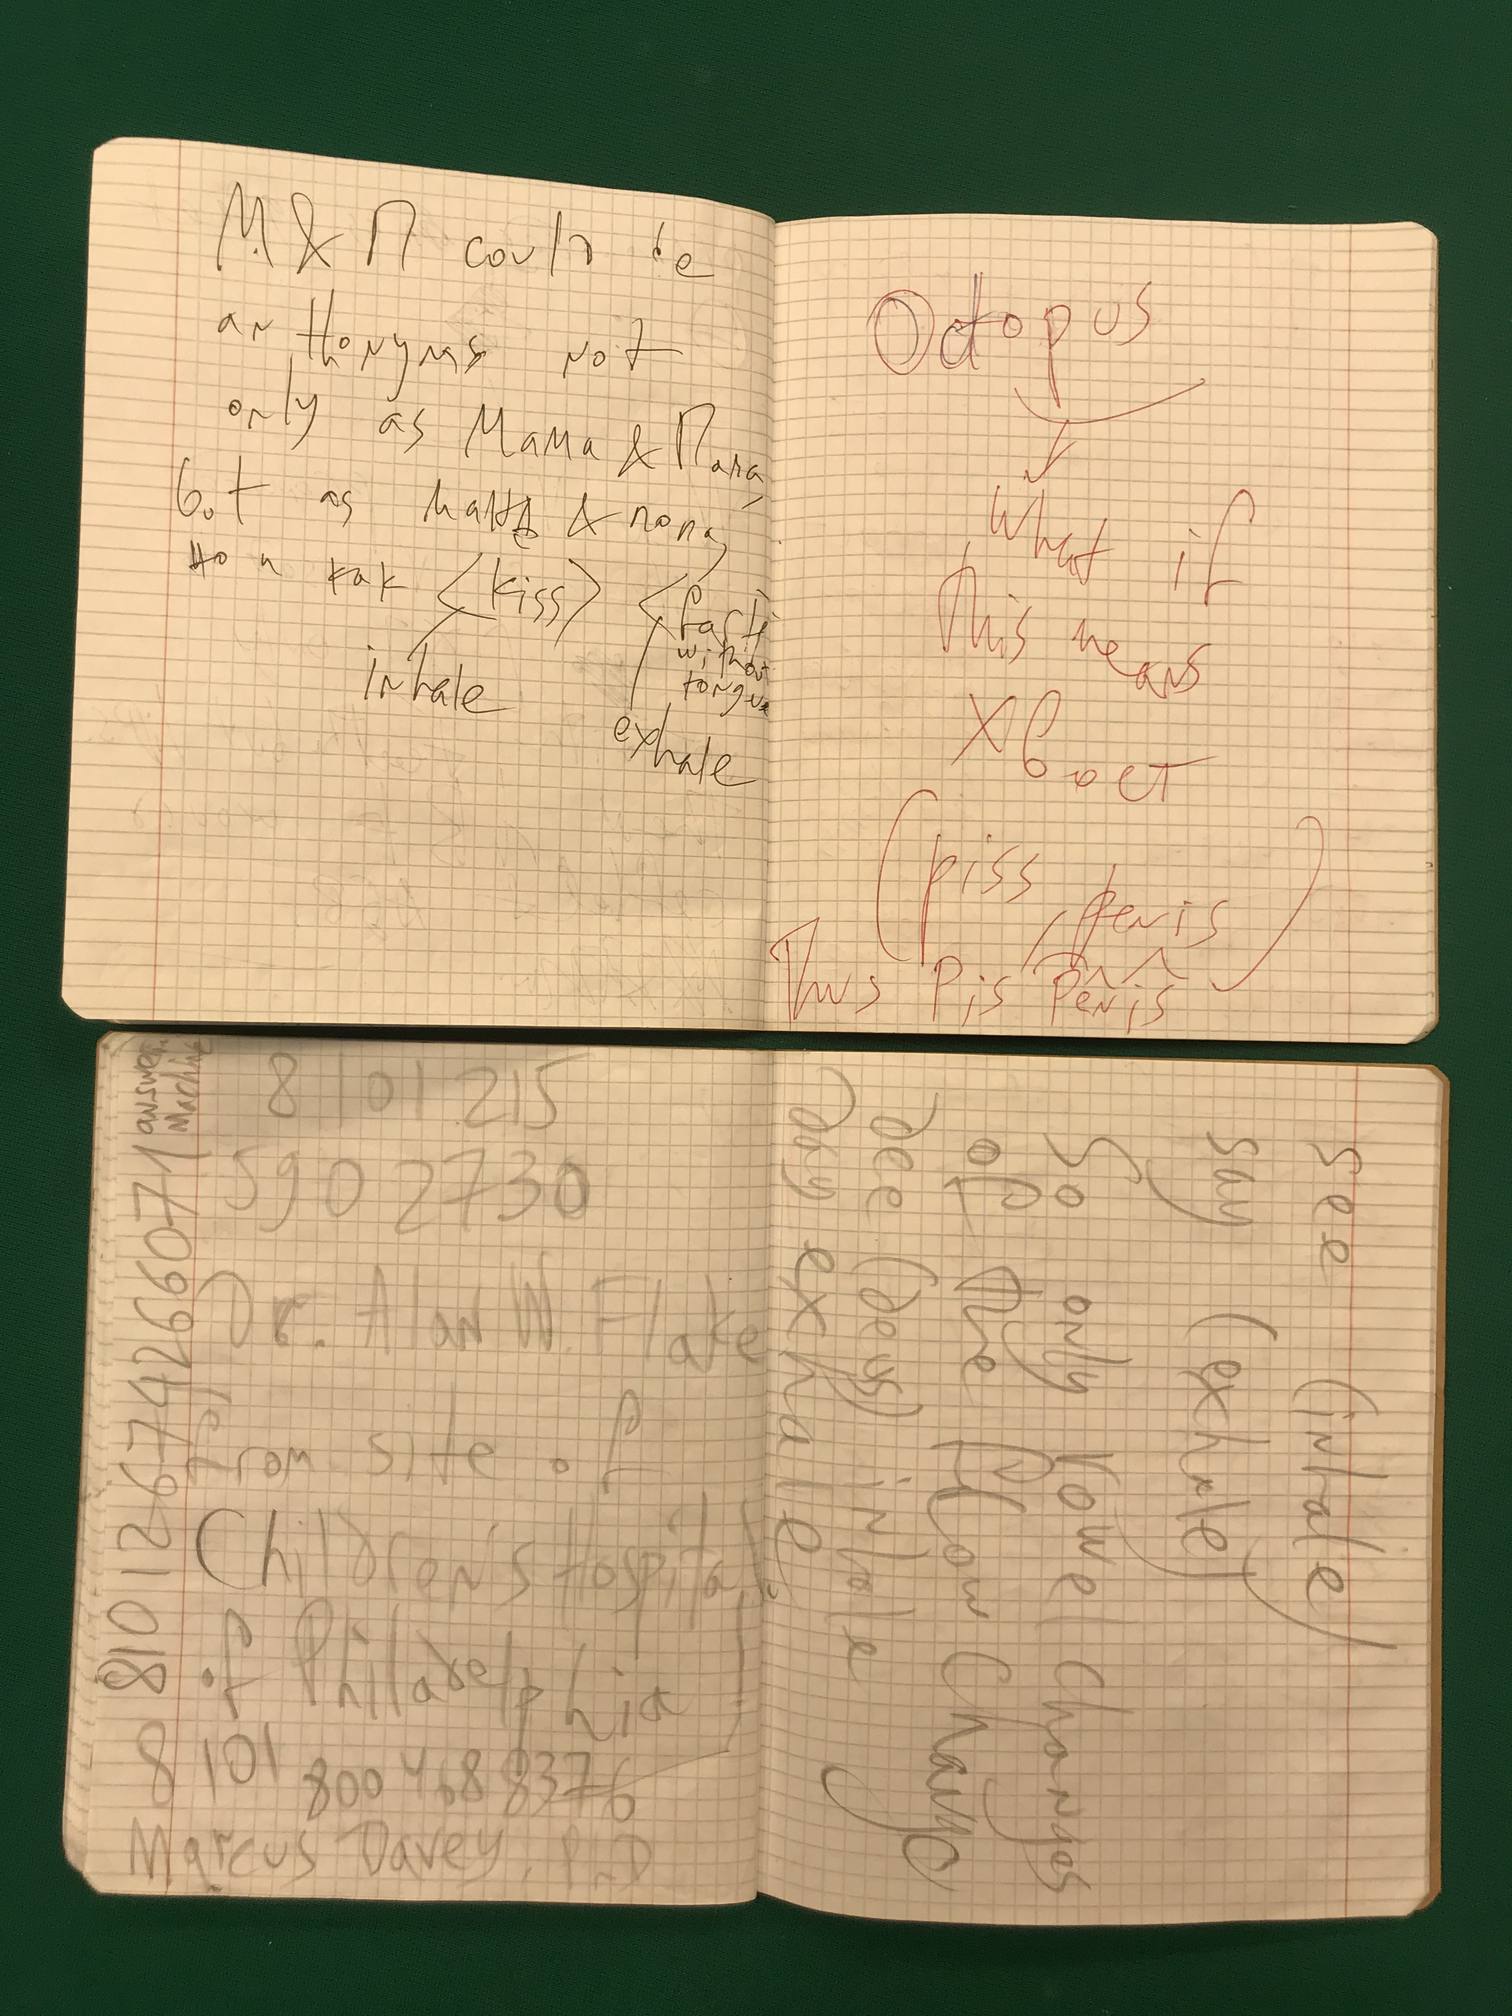 М & П could be
anthonyms not
only as Мама & Папа,
but as & попа,
но и как <kiss> <fart
without
tongue
inhale
exhale
Octopus
What if
this means
хвост
(piss, penis)
Thus Pis Penis
answer.
Machine
8 101 215
590 2730
Dr. Alan W. Flake
from site of
Children's Hospital
of Philadelphia
8 101 800 468 8376
Marcus Davey, PhD
8101267426607 1
see (inhale)
say (exhale)
So only vowel changes
of the flow change
dee (deus) inhale
day exhale